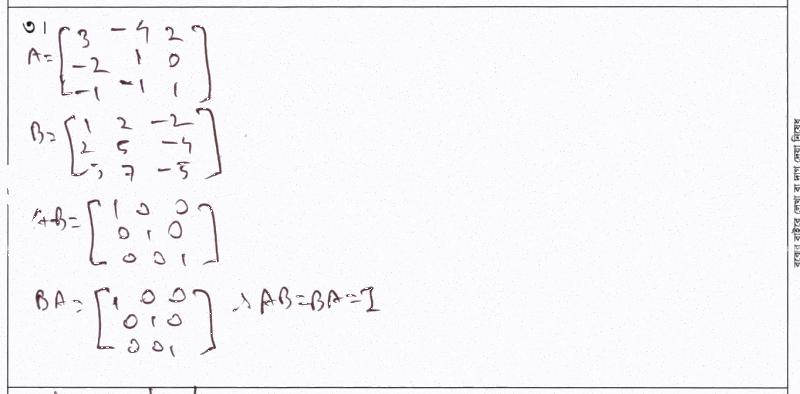 ৩।
A = [ 3 -4 2
-2 1 0
-1 -1 1 ]
B = [ 1 2 -2
2 5 -4
3 7 -5 ]
AB = [ 1 0 0
0 1 0
0 0 1 ]
BA = [ 1 0 0
0 1 0
0 0 1 ] ∴ AB=BA=I
বক্সের বাইরে লেখা বা দাগ দেয়া নিষেধ